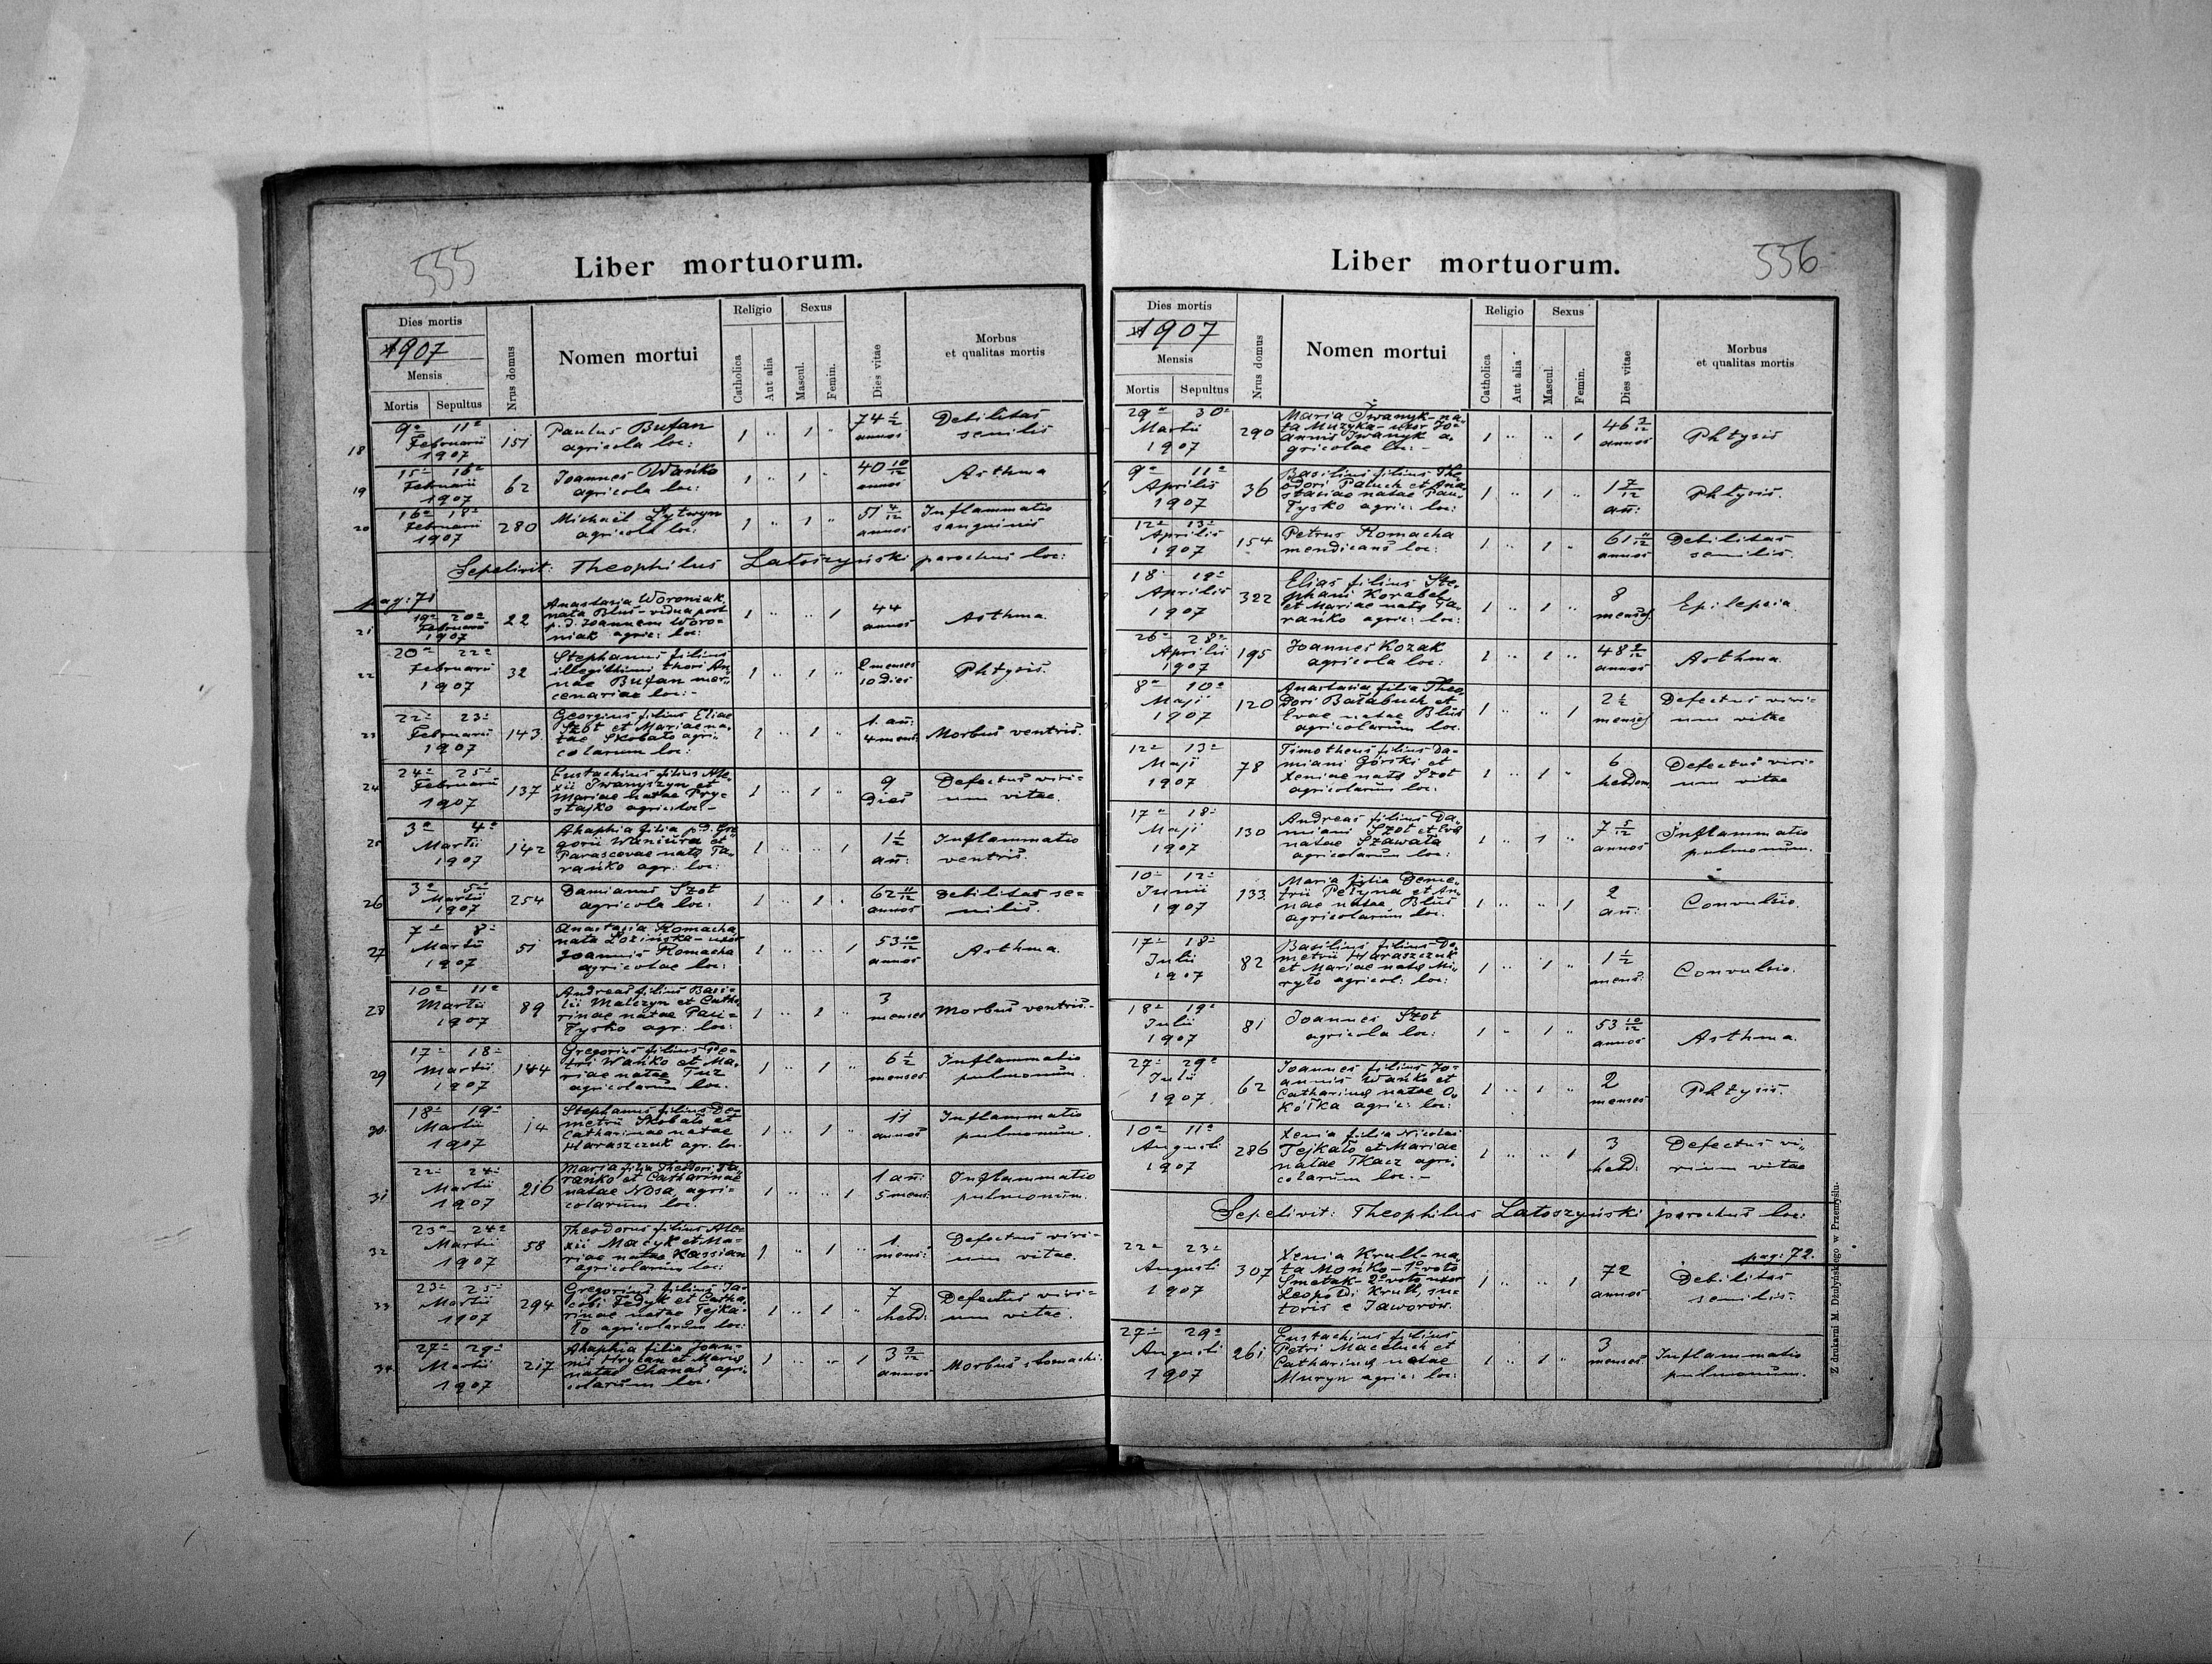 555
Liber mortuorum.
Dies mortis
1907
Mensis
Mortis Sepultus
Nrus domus
Nomen mortui
Religio
Catholica
Aut alia
Sexus
Mascul.
Femin.
Dies vitae
Morbus
et qualitas mortis
18 9a 11a Februarii 1907 151
Paulus Bufan
agricola loc:
1 " 1 " 74 1/2 annos
Debilitas
senilis
19 15a 16a Februarii 1907 62
Joannes Wańko
agricola loc:
1 " 1 " 40 10/12 annos
Asthma
20 16a 18a Februarii 1907 280
Michaël Lytwyn
agricola loc:
1 " 1 " 51 4/12 annos
Inflammatio
sanguinis
Sepelivit: Theophilus Latoszyński parochus loc:
pag: 71
21 19a 20a Februarii 1907 22
Anastasia Woroniak
nata Blus - vidua post
p. d. Joannem Woro=
niak agric: loc:
1 " " 1 44 annos
Asthma.
22 20a 22a Februarii 1907 32
Stephanus filius
illegithimi thori An=
nae Bufan mer=
cenariae loc: -
1 " 1 " 2 menses 10 dies
Phtysis.
23 22a 23a Februarii 1907 143
Georgius filius Eliae
Szot et Mariae na=
tae Skobało agri=
colarum loc:
1 " 1 " 1 añ: 4 mens:
Morbus ventris.
24 24a 25a Februarii 1907 137
Eustachius filius Ale=
xii Iwanyszyn et
Mariae natae Pry=
stajko agric: loc: -
1 " 1 " 9 dies
Defectus viri=
um vitae.
25 3a 4a Martii 1907 142
Ahaphia filia p. d. Gre=
gorii Waniura et
Parascevae natae Ta=
rańko agr: loc:
1 " " 1 1 1/2 añ:
Inflammatio
ventris.
26 3a 5a Martii 1907 254
Damianus Szot
agricola loc:
1 " 1 " 62 11/12 annos
Debilitas se=
nilis.
27 7a 8a Martii 1907 51
Anastasia Romacha
nata Łozińska - uxor
Joannis Romacha
agricolae loc:
1 " " 1 53 10/12 annos
Asthma.
28 10a 11a Martii 1907 89
Andreas filius Basi=
lii Malczyn et Catha=
rinae natae
agr: loc:
1 " 1 " 3 menses
Morbus ventris. -
29 17a 18a Martii 1907 144
Gregorius filius Pe=
tri Wańko et Ma=
riae natae Tuz
agricolarum loc.
1 " 1 " 6 1/2 menses
Inflammatio
pulmonum.
30 18a 19a Martii 1907 14
Stephanus filius De=
metrii Skobało et
Catharinae natae
Haraszczuk agr. loc.
1 " 1 " 11 annos
Inflammatio
pulmonum.
31 22a 24a Martii 1907 216
Maria filia Theodori Ta=
rańko et Catharinae
natae Nosa, agri=
colarum loc.
1 " " 1 1 añ: 5 mens:
Inflammatio
pulmonum.
32 23a 24a Martii 1907 58
Theodorus filius Ale=
xii Macyk et Ma=
riae natae Kassian
agricolarum loc:
1 " 1 " 1 mens:
Defectus viri=
um vitae.
33 23a 25a Martii 1907 294
Gregorius filius Ja=
cobi Fedyk et Catha=
rinae natae Tejka=
ło agricolarum loc:
1 " 1 " 7 hebd:
Defectus viri=
um vitae.
34 27a 29a Martii 1907 217
Ahaphia filia Joan=
nis Hrycan et Mariae
natae Chanas agri=
colarum loc:
1 " " 1 3 9/12 annos
Morbus stomachi.
556
Liber mortuorum.
Dies mortis
1907
Mensis
Mortis Sepultus
Nrus domus
Nomen mortui
Religio
Catholica
Aut alia
Sexus
Mascul.
Femin.
Dies vitae
Morbus
et qualitas mortis
29a 30a Martii 1907 290
Maria Iwanyk - na=
ta Muzyka - uxor Jo=
annis Iwanyk a=
gricolae loc: -
1 " " 1 46 annos
Phtysis
9a 11a Aprilis 1907 36
Basilius filius The=
odori Paluch et Ana=
stasiae natae
agric: loc:
1 " 1 " 1 7/12 añ:
Phtysis.
12a 13a Aprilis 1907 154
Petrus Romacha
mendicans loc:
1 " 1 " 61 11/12 annos
Debilitas
senilis.
18 19a Aprilis 1907 322
Elias filius Ste=
phani Korabel
et Mariae natae Ta=
rańko agric: loc:
1 " 1 " 8 menses
Epilepsia.
26a 28a Aprilis 1907 195
Joannes Kozak
agricola loc:
1 " 1 " 48 annos
Asthma.
8a 10a Maji 1907 120
Anastasia filia Theo=
dori Bałabuch et
Evae natae Blus
agricolarum loc.
1 " " 1 2 1/2 menses
Defectus viri=
um vitae
12a 13a Maji 1907 78
Timotheus filius Da=
miani Górski et
Xeniae natae Szot
agricolarum loc:
1 " 1 " 6 hebdom
Defectus viri=
um vitae
17a 18a Maji 1907 130
Andreas filius Da=
miani Szot et Evae
natae Szawała
agricolarum loc:
1 " 1 " 7 5/12 annos
Inflammatio
pulmonum.
10a 12a Junii 1907 133
Maria filia Deme=
trii Petryna et An=
nae natae Blus
agricolarum loc.
1 " " 1 2 añ:
Convulsio.
17a 18a Julii 1907 82
Basilius filius De=
metrii Haraszczuk
et Mariae natae Mi=
ryło agricol: loc:
1 " 1 " 1 1/2 mens:
Convulsio.
18a 19a Julii 1907 81
Joannes Szot
agricola loc:
1 " 1 " 53 10/12 annos
Asthma.
27a 29a Julii 1907 62
Joannes filius Jo=
annis Wańko et
Catharinae natae O=
kółka agric: loc:
1 " 1 " 2 menses
Phtysis.
10a 11a Augusti 1907 286
Xenia filia Nicolai
Tejkało et Mariae
natae Tkacz agri=
colarum loc. -
1 " " 1 3 hebd:
Defectus vi=
rium vitae
Sepelivit: Theophilus Latoszyński parochus loc:
pag: 72.
22a 23a Augusti 1907 307
Xenia Krull - na=
ta Mońko - 1o voto
Smetak - 2o voto uxor
Leopoldi Krull, su=
toris e Jaworów.
1 " " 1 72 annos
Debilitas
senilis.
27a 29a Augusti 1907 261
Eustachius filius
Petri Maceluch et
Catharinae natae
Muryn agric: loc:
1 " 1 " 3 menses
Inflammatio
pulmonum.
Z drukarni M. Dżułyńskiego w Przemyślu.